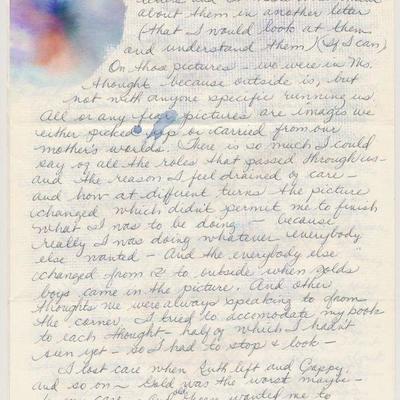 about them in another letter
(that I would look at them
and understand them) (If I can)
On those pictures - we were in Ms.
thought because outside is, but
not with anyone specific running us.
All or any pictures are images we
either picked up or carried from our
mother's worlds. There is so much I could
say of all the roles that passed through us -
and the reason I feel drained of care -
and how at different turns the picture
changed, which didn't permit me to finish
what I was to be doing - because
really I was doing whatever everybody
else wanted - And the everybody else
changed from to outside when golds
boys came in the picture. And other
thoughts we were always speaking to from
the corner. I tried to accomodate my book
to each thought - half of which I hadn't
seen yet - so I had to stop & look -
I lost care when Ruth left and Gappy,
and so on - Gold was the worst maybe -
wanted me to